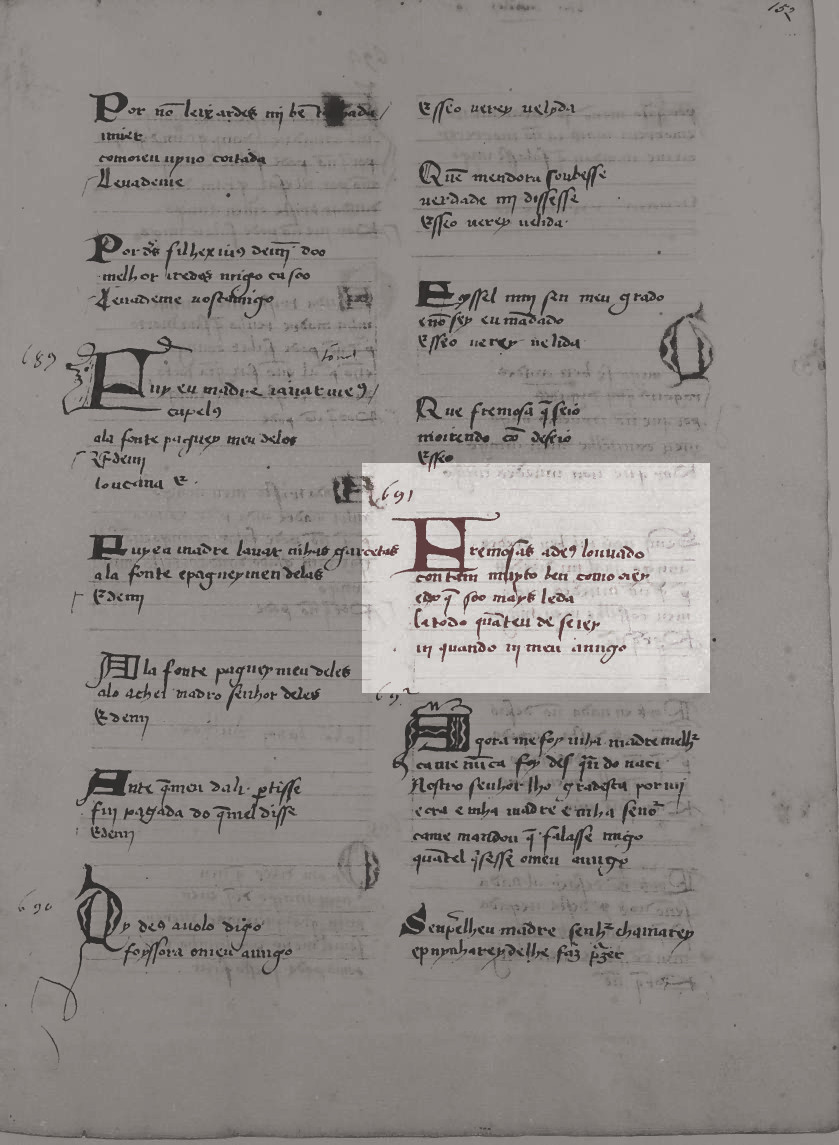 152
Por nō leixardes mi bē
uiuer
como eu uyuo coitada
Leuademe
melhor uedes migo ca soo
Leuademe uosco amigo
689
Fuy eu madre lauar meꝯ
cabelꝯ
ala fonte e paguey meu delos
E demi
louçana E.
Fuy eu madre lauar mīhas garcetas
ala fonte e pagueymeu delas
E demi
A la fonte paguey meu deles
alo achei madro senhor deles
E demi
Ante q̄ meu dali partisse
fui pagada do q̄ mel disse
E demi
690
Oy deꝯ a uolo digo
foyssora o meu amigo
E sse o uerey uelyda
Quē mendora soubesse
uerdade mi dissesse
E sse o uerey uelida
Foyssel mui sen meu grado
e nō sey eu mādado
E sse o uerey uelida
Que fremosa q̄ seio
moirendo cō deseio
E sse o
691
Fremosas a deꝯ louuado
con tam muyto ben como oiey
e do q̄ soo mays leda
la todo quāteu deseiey
ui quando ui meu amigo
692
Agora me foy mha madre melhꝛ
ca me nūca foy des quādo naci
Nostro senhor lho gradesca por mi
e ora e mha madre e mha senoꝛ
ca me mandou q̄ falasse migo
quātel q̄sesse o meu amigo
Senp̄ lheu madre senhꝛ chamarey
e punharey de lhe faz̄ p̄zer